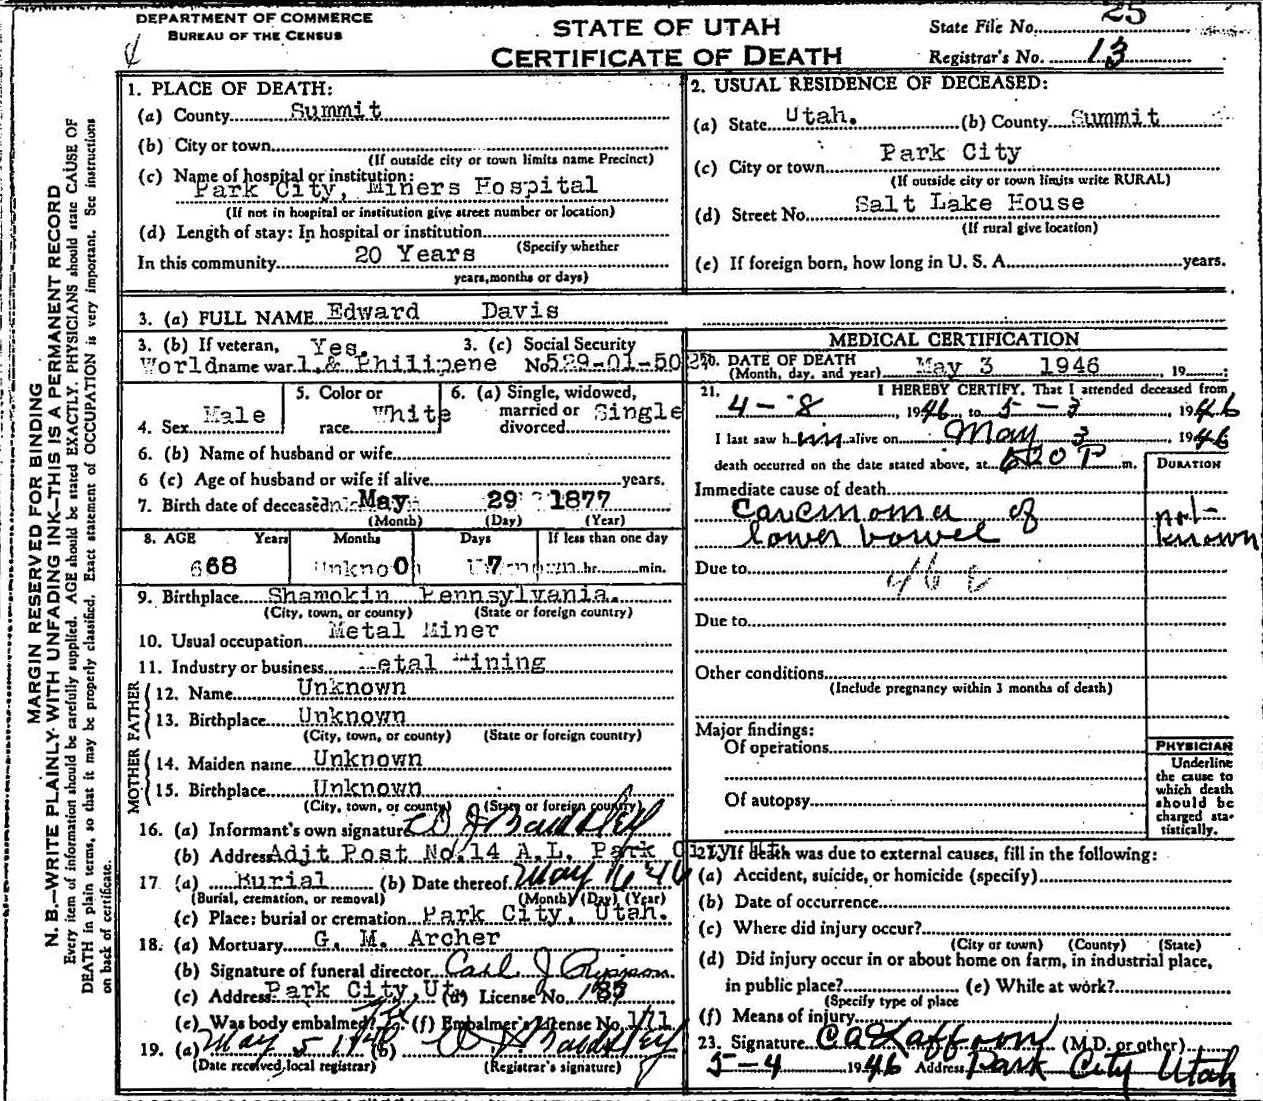 DEPARTMENT OF COMMERCE
BUREAU OF THE CENSUS
STATE OF UTAH
CERTIFICATE OF DEATH
State File No. 25
Registrar's No. 13
MARGIN RESERVED FOR BINDING
N. B.—WRITE PLAINLY WITH UNFADING INK—THIS IS A PERMANENT RECORD
Every item of information should be carefully supplied. AGE should be stated EXACTLY. PHYSICIANS should state CAUSE OF
DEATH in plain terms, so that it may be properly classified. Exact statement of OCCUPATION is very important. See instructions
on back of certificate.
1. PLACE OF DEATH:
(a) County Summit
(b) City or town
(If outside city or town limits name Precinct)
(c) Name of hospital or institution:
Park City, Miners Hospital
(If not in hospital or institution give street number or location)
(d) Length of stay: In hospital or institution
(Specify whether
In this community 20 Years
years, months or days)
2. USUAL RESIDENCE OF DECEASED:
(a) State Utah. (b) County Summit
(c) City or town Park City
(If outside city or town limits write RURAL)
(d) Street No. Salt Lake House
(If rural give location)
(e) If foreign born, how long in U. S. A. years.
3. (a) FULL NAME Edward Davis
3. (b) If veteran, Yes, 3. (c) Social Security
World name war 1.& Philipene No 529-01-50
4. Sex Male
5. Color or race White
6. (a) Single, widowed, married or divorced Single
6. (b) Name of husband or wife
6 (c) Age of husband or wife if alive years.
7. Birth date of deceased May 29 1877
(Month) (Day) (Year)
8. AGE Years Months Days If less than one day
68 0 7 hr. min.
9. Birthplace Shamokin Pennsylvania.
(City, town, or county) (State or foreign country)
10. Usual occupation Metal Miner
11. Industry or business Metal Mining
FATHER
12. Name Unknown
13. Birthplace Unknown
(City, town, or county) (State or foreign country)
MOTHER
14. Maiden name Unknown
15. Birthplace Unknown
(City, town, or county) (State or foreign country)
16. (a) Informant's own signature
(b) Address Adjt Post No. 14 A.L. Park City
17 (a) Burial (b) Date thereof May 46
(Burial, cremation, or removal) (Month) (Day) (Year)
(c) Place: burial or cremation Park City, Utah.
18. (a) Mortuary G. M. Archer
(b) Signature of funeral director Carl J
(c) Address Park City, Ut. (d) License No.
(e) Was body embalmed? (f) Embalmer's License No.
19. (a) May 5 1946 (b)
(Date received local registrar) (Registrar's signature)
MEDICAL CERTIFICATION
20. DATE OF DEATH
(Month, day, and year) May 3 1946, 19
21. I HEREBY CERTIFY, That I attended deceased from
4-8, 1946, to 5-3, 1946
I last saw him alive on May 3, 1946
death occurred on the date stated above, at P m.
DURATION
Immediate cause of death
Carcinoma of
lower bowel
not
known
Due to 46
Due to
Other conditions
(Include pregnancy within 3 months of death)
Major findings:
Of operations
Of autopsy
PHYSICIAN
Underline
the cause to
which death
should be
charged sta-
tistically.
22. If death was due to external causes, fill in the following:
(a) Accident, suicide, or homicide (specify)
(b) Date of occurrence
(c) Where did injury occur?
(City or town) (County) (State)
(d) Did injury occur in or about home on farm, in industrial place,
in public place? (e) While at work?
(Specify type of place
(f) Means of injury
23. Signature (M.D. or other)
5-4 1946 Address Park City Utah